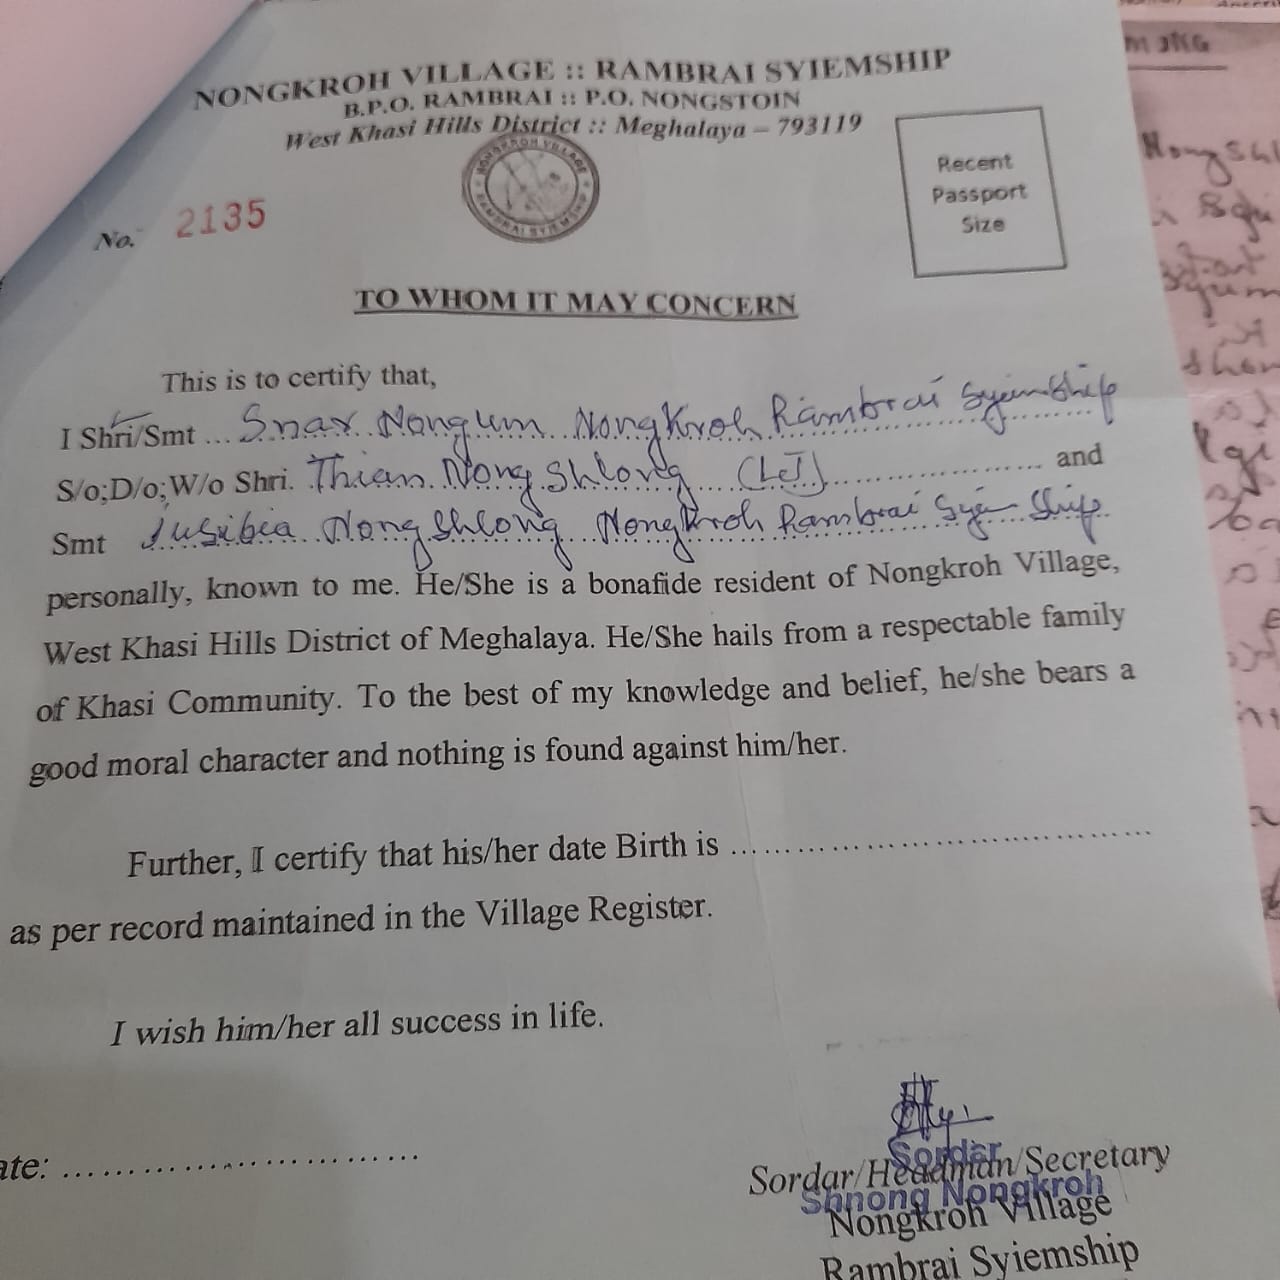 NONGKROH VILLAGE :: RAMBRAI SYIEMSHIP
B.P.O. RAMBRAI :: P.O. NONGSTOIN
West Khasi Hills District :: Meghalaya – 793119
NONGKROH VILLAGE
RAMBRAI SYIEMSHIP
Recent
Passport
Size
No. 2135
TO WHOM IT MAY CONCERN
This is to certify that,
I Shri/Smt ... Snar Nongum Nongkroh Rambrai Syiemship
S/o;D/o;W/o Shri. Thian Nong Shlong (LJ) ........................ and
Smt Nongshlong Nongkroh Rambrai Ship
personally, known to me. He/She is a bonafide resident of Nongkroh Village,
West Khasi Hills District of Meghalaya. He/She hails from a respectable family
of Khasi Community. To the best of my knowledge and belief, he/she bears a
good moral character and nothing is found against him/her.
Further, I certify that his/her date Birth is ..........................................
as per record maintained in the Village Register.
I wish him/her all success in life.
ate: ....................................
Sordar
Sordar/Headman/Secretary
Shnong Nongkroh
Nongkroh Village
Rambrai Syiemship